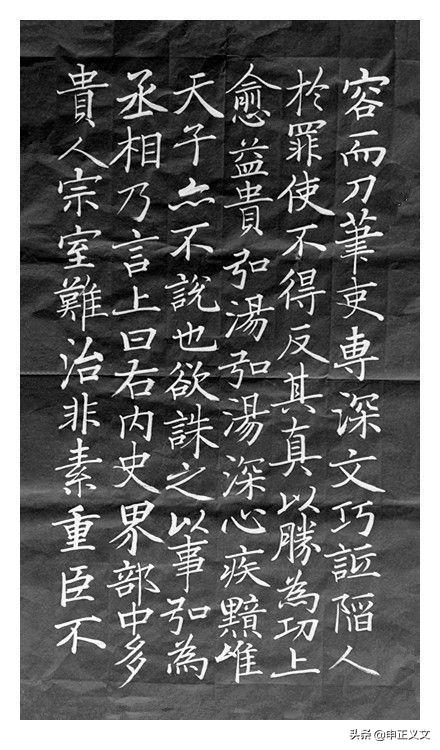 容而刀筆吏專深文巧詆陷人
於罪使不得反其真以勝為功上
愈益貴弘湯弘湯深心疾黯唯
天子亦不說也欲誅之以事弘為
丞相乃言上曰右內史界部中多
貴人宗室難治非素重臣不
头条@申正义文